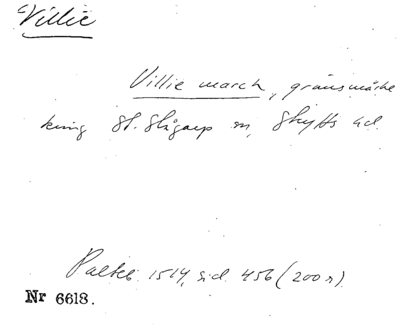 Villie
Villie march, gränsmärke
kring St. Slågarp sn, Skytts hd.
Palteb. 1514, sid. 456 (200 r)
Nr 6613.